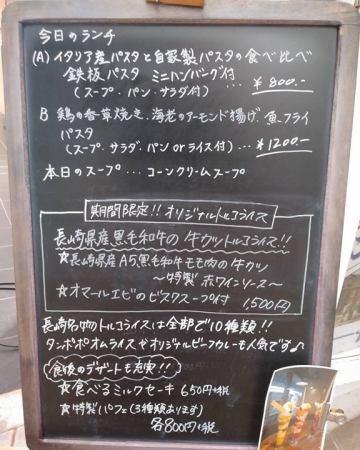 今日のランチ
(A) イタリア産パスタと自家製パスタの食べ比べ
鉄板パスタ ミニハンバーグ付 … ¥800.-
(スープ・パン・サラダ付)
B 鶏の香草焼き、海老のアーモンド揚げ、魚フライ
パスタ
(スープ、サラダ、パンorライス付) … ¥1200.-
本日のスープ… コーンクリームスープ
期間限定!! オリジナルトルコライス
長崎県産黒毛和牛の牛カツトルコライス!!
☆長崎県産A5黒毛和牛モモ肉の牛カツ
~特製 赤ワインソース~
☆オマールエビのビスクスープ付 1,500円
長崎名物トルコライスは全部で10種類!!
タンポポオムライスやオリジナルビーフカレーも人気です♪
食後のデザートも充実!!
☆食べるミルクセーキ 650円+税
☆特製パフェ(3種類あります)
各800円+税